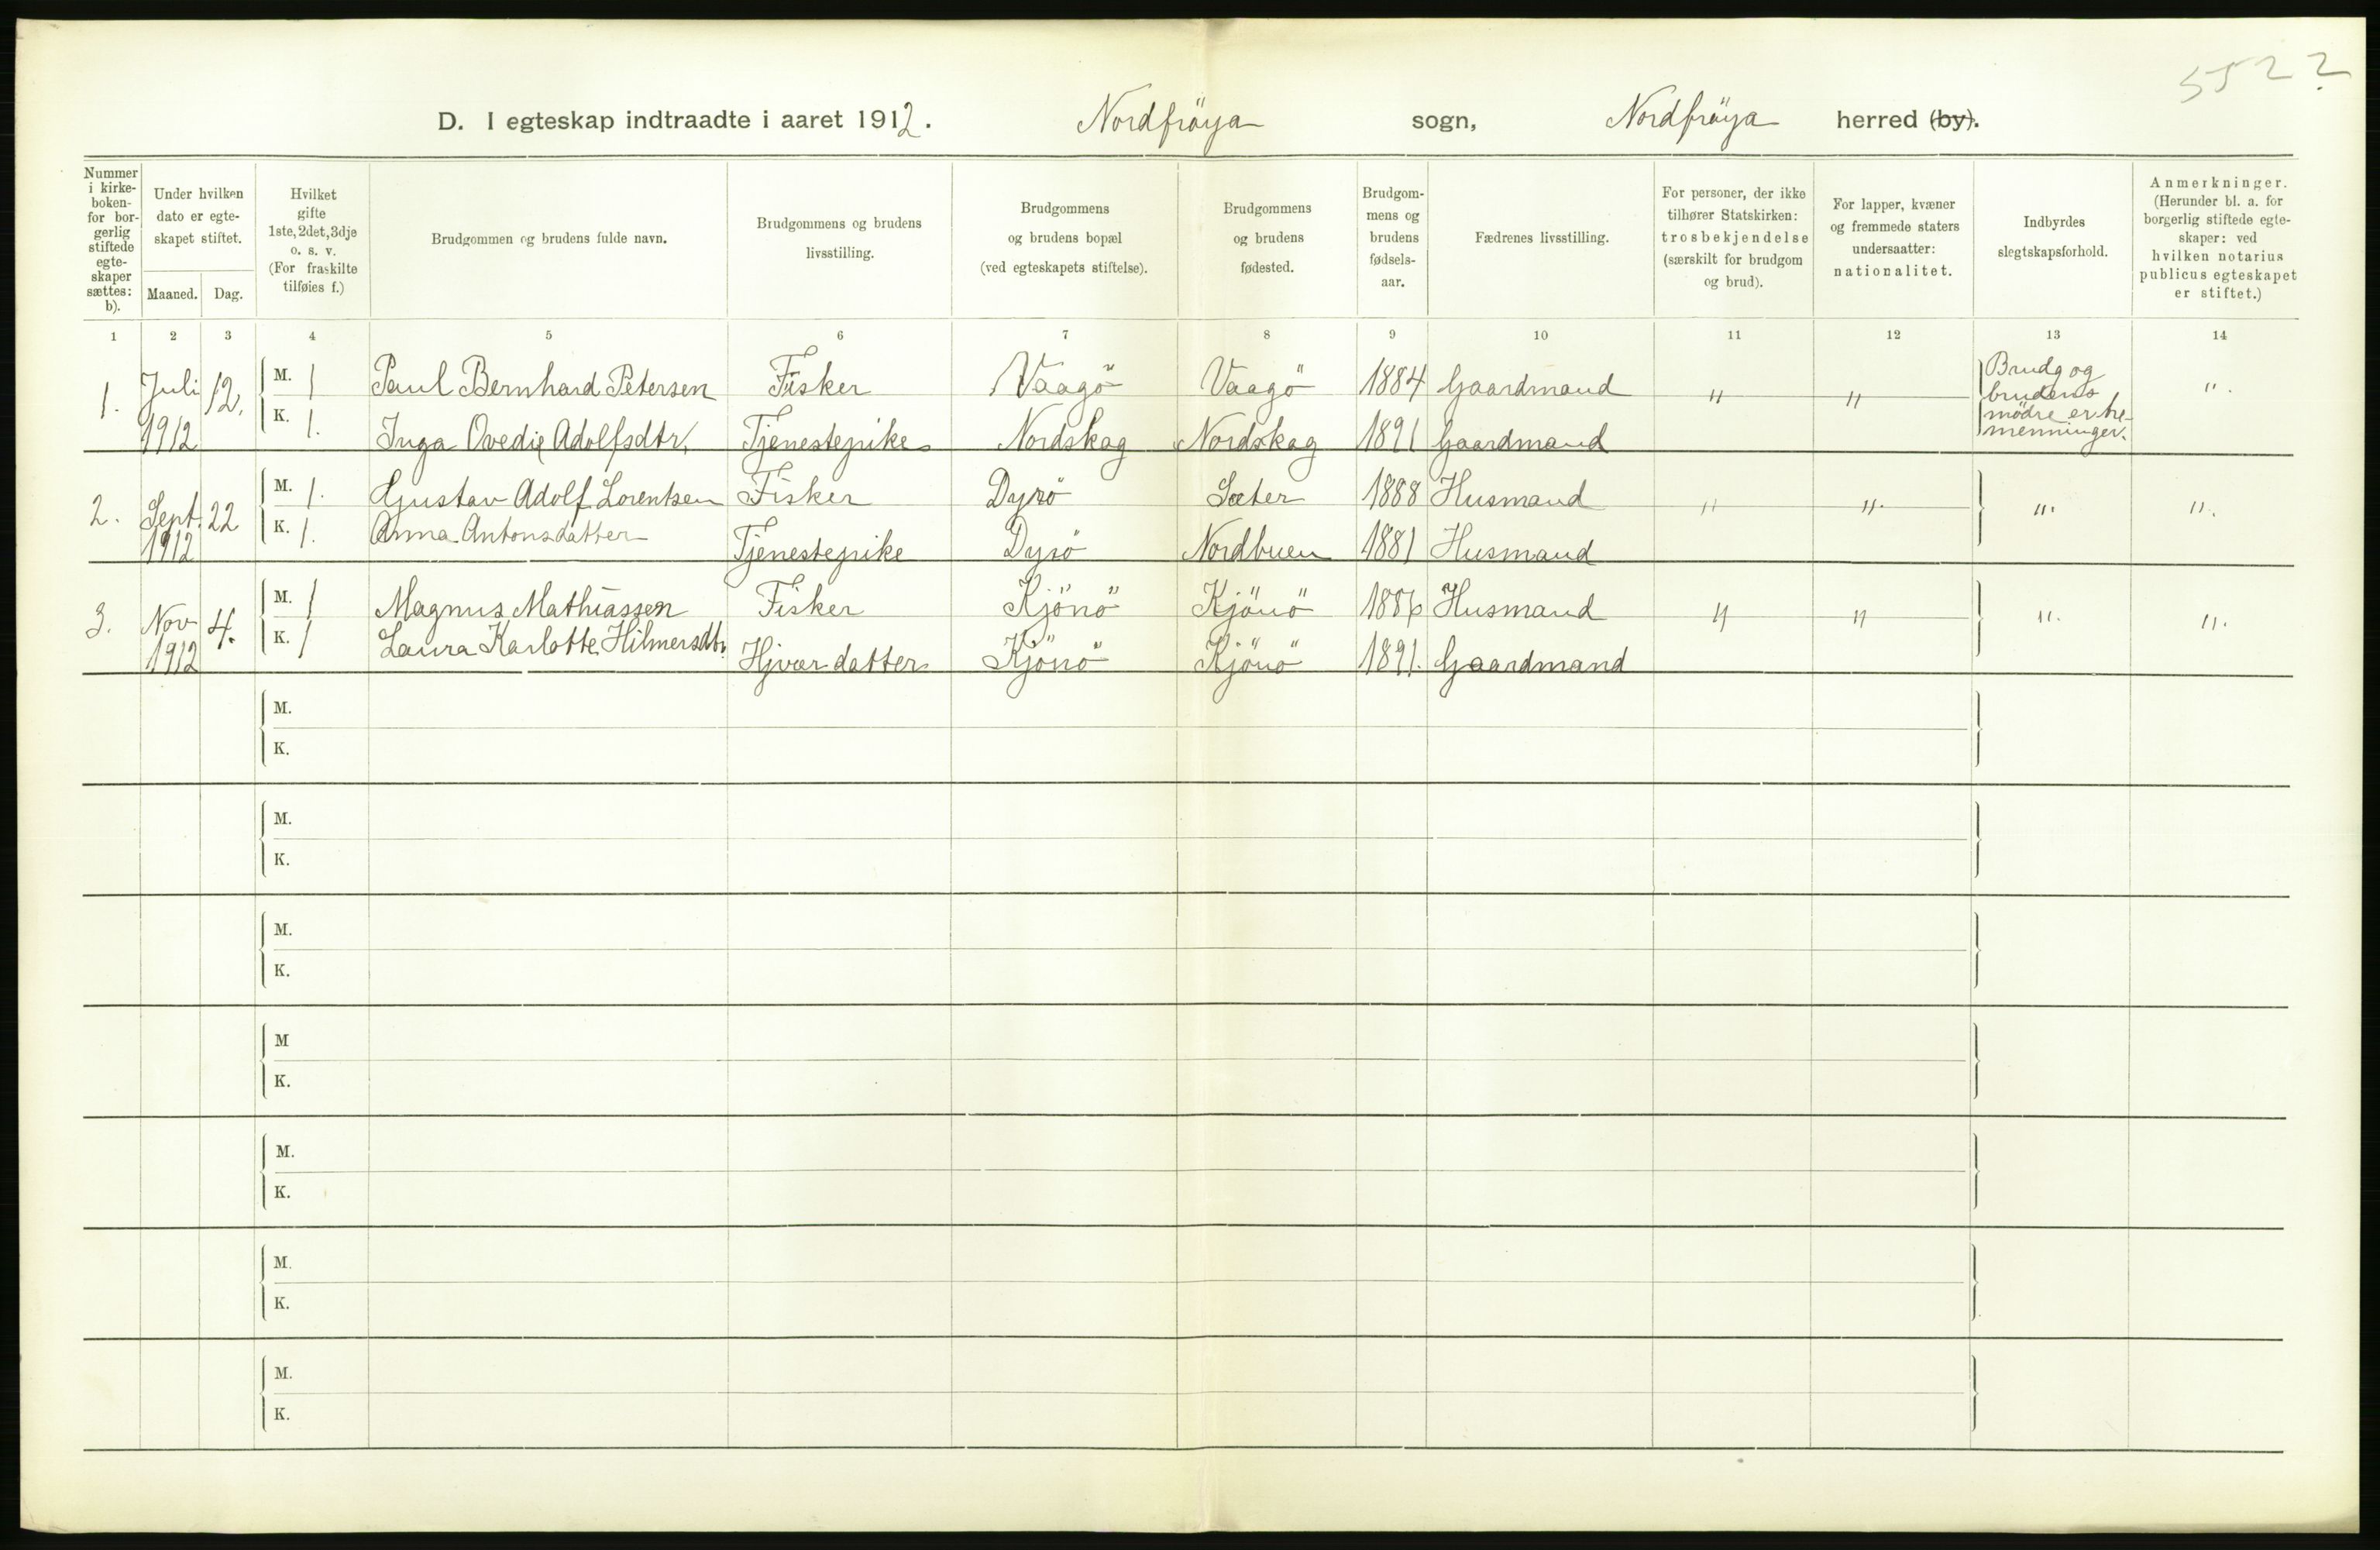 552 2
D. I egteskap indtraadte i aaret 1912. Nordfröya sogn, Nordfröya herred (by).
Nummer i kirke-boken- for bor-gerlig stiftede egte-skaper sættes: b).
Under hvilken dato er egte-skapet stiftet.
Maaned. Dag.
Hvilket gifte 1ste, 2det, 3dje o. s. v. (For fraskilte tilføies f.)
Brudgommen og brudens fulde navn.
Brudgommens og brudens livsstilling.
Brudgommens og brudens bopæl (ved egteskapets stiftelse).
Brudgommens og brudens fødested.
Brudgom-mens og brudens fødsels-aar.
Fædrenes livsstilling.
For personer, der ikke tilhører Statskirken: trosbekjendelse (særskilt for brudgom og brud).
For lapper, kvæner og fremmede staters undersaatter: nationalitet.
Indbyrdes slegtskapsforhold.
Anmerkninger. (Herunder bl. a. for borgerlig stiftede egte-skaper: ved hvilken notarius publicus egteskapet er stiftet.)
1 2 3 4 5 6 7 8 9 10 11 12 13 14
1. Juli 1912 12. M. 1 Paul Bernhard Petersen Fisker Vaagö Vaagö 1884 Gaardmand " " Brudg og brudens mødre er tre-menninger. ".
K. 1. Inga Ovedie Adolfsdtr. Tjenestepike Nordskag Nordskag 1891 Gaardmand
2. Sept. 1912 22 M. 1. Gustav Adolf Lorentsen Fisker Dyrö Sæter 1888 Husmand " ". ". ".
K. 1. Anna Antonsdatter Tjenestepike Dyrö Nordbuen 1881 Husmand
3. Nov 1912 4. M. 1 Magnus Mathiassen Fisker Kjönö Kjönö 1886 Husmand " " ". ".
K. 1 Laura Karlotte Hilmersdtr. Hjvær datter Kjönö Kjönö 1891. Gaardmand
M.
K.
M.
K.
M.
K.
M
K.
M.
K.
M.
K.
M.
K.